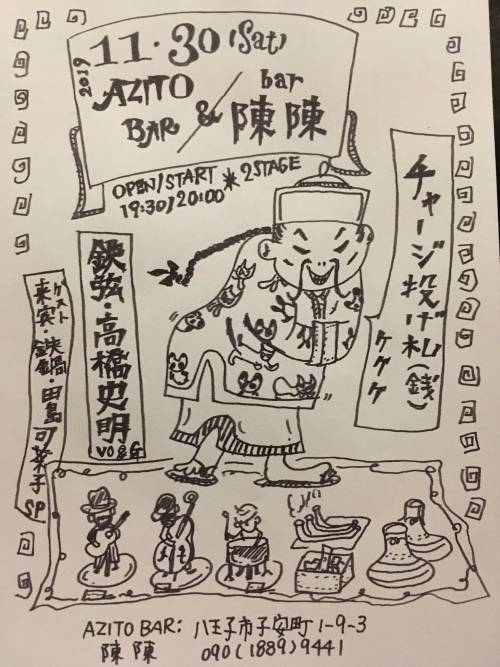 2019
11・30(Sat)
AZITO BAR & bar 陳陳
OPEN/START ＊ 2STAGE
19:30/20:00
チャージ投げ札(銭)
ケケケ
鉄弦・高橋史明
VO&G
ゲスト
来賓・鉄鍋・田島可菜子
SP
AZITO BAR: 八王子市子安町1-9-3
陳陳 090(1889)9441